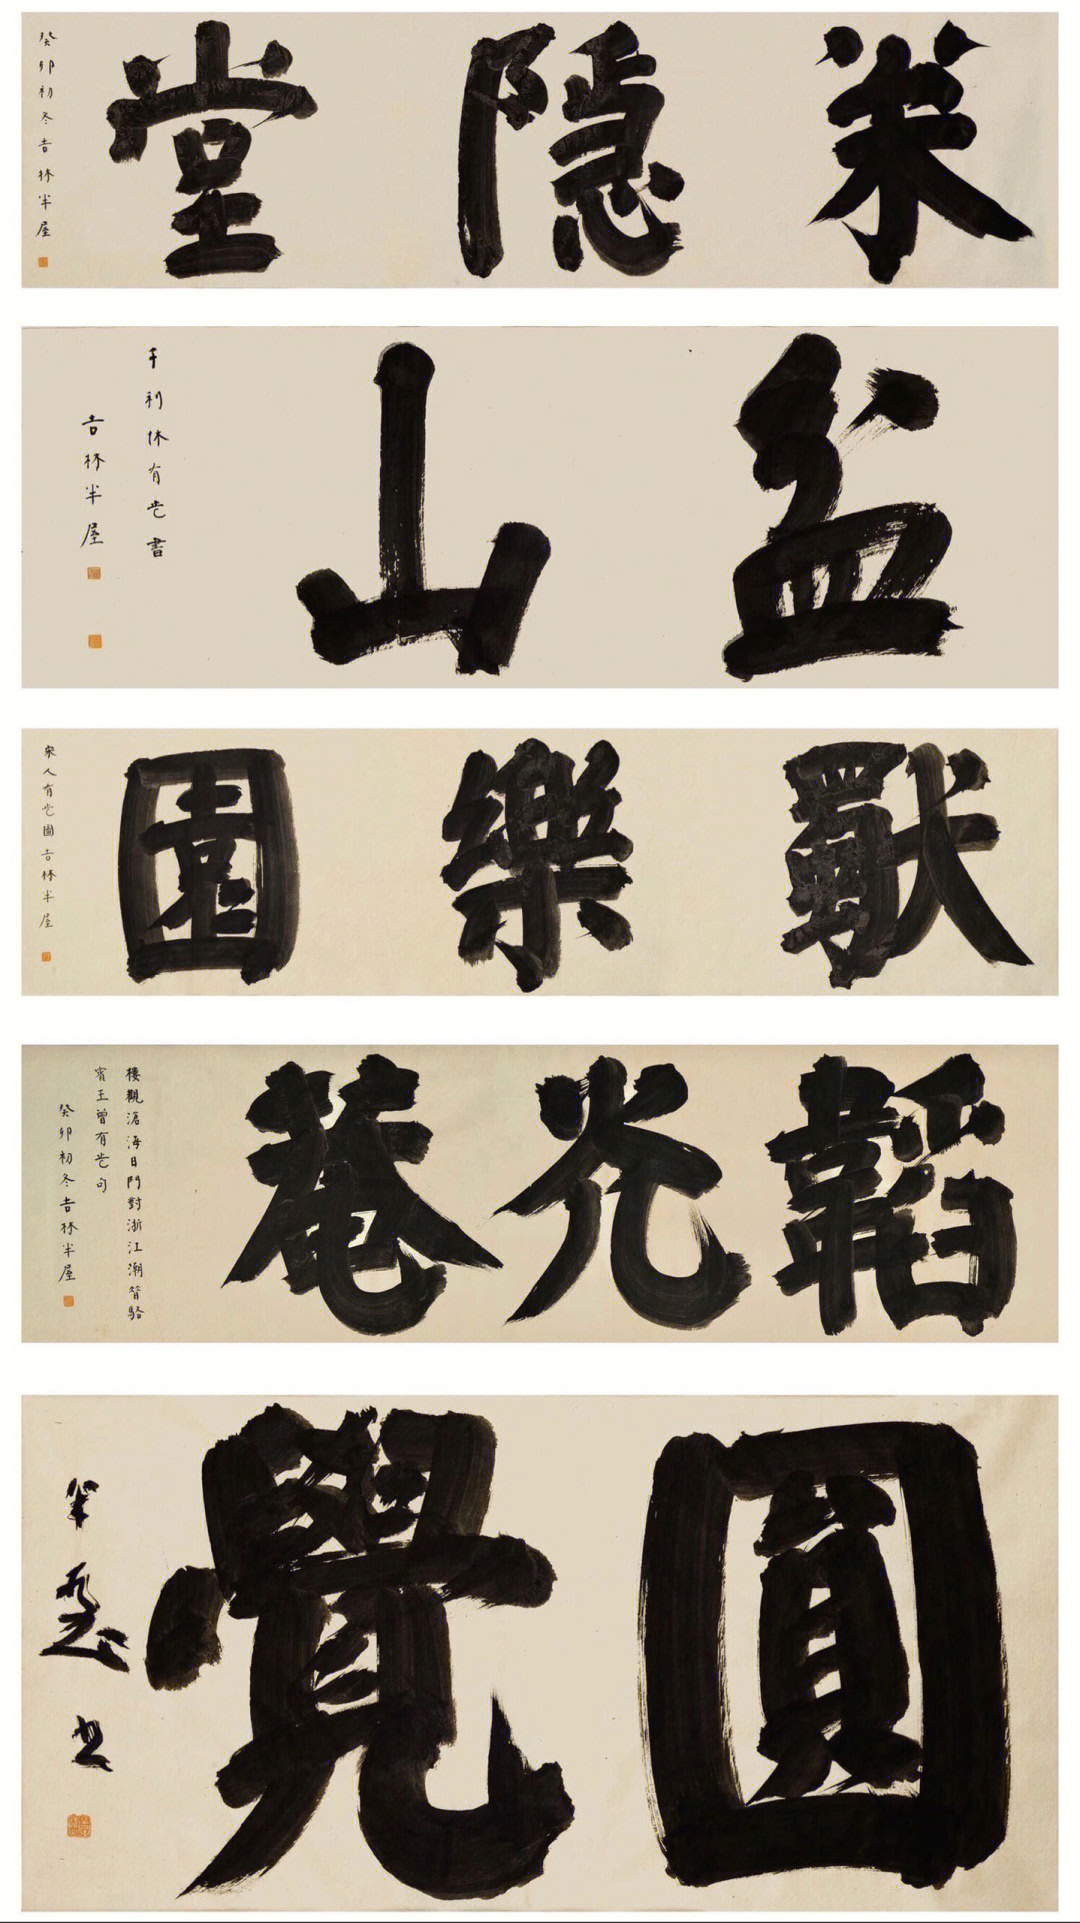 隐堂
癸卯初冬吉林半屋
盆山
千利休有此書
吉林半屋
獸樂園
宋人有此圖吉林半屋
韜光菴
樓觀滄海日門對浙江潮昔駱
賓王曾有此句
癸卯初冬吉林半屋
圓覺
半屋書